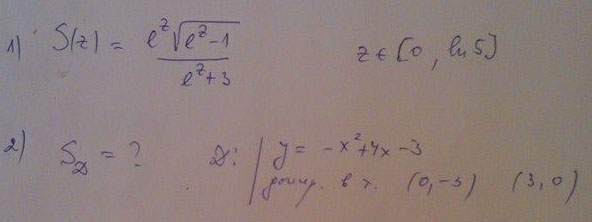 1) S(z) = e^z √(e^z-1) / e^z+3 z ∈ [0, ln 5]
2) S_D = ? D: | y = -x²+4x-3
в т. (0,-3) (3,0)